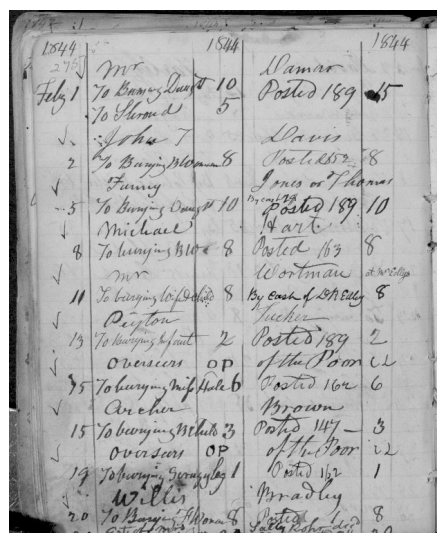 1844 1844 1844
275 Mr Damar
Feby 1 To Burying Daught 10 Posted 189 15
To Shroud 5
John T Davis
2 To Burying B Woman 8 Posted 552 8
Fanny Jones or Thomas
By cash 29
5 To Burying Daught 10 Posted 189 10
Michael Hart
8 To burying 8 Posted 163 8
Mr Wortman at
11 To burying 8 By cash of 8
Peyton Tucker
13 To burying Infant 2 Posted 189 2
Overseers OP of the Poor
15 To burying Hale 6 Posted 162 6
Archer Brown
15 To burying 3 Posted 147 — 3
Overseers OP of the Poor
19 To burying leg 1 Posted 162 1
Willis Bradley
20 To Burying Woman 8 Posted 1 8